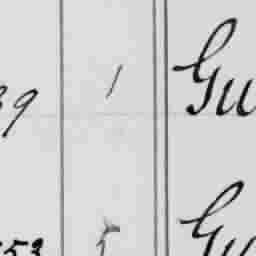 9 1 Gu
53 5 Gu